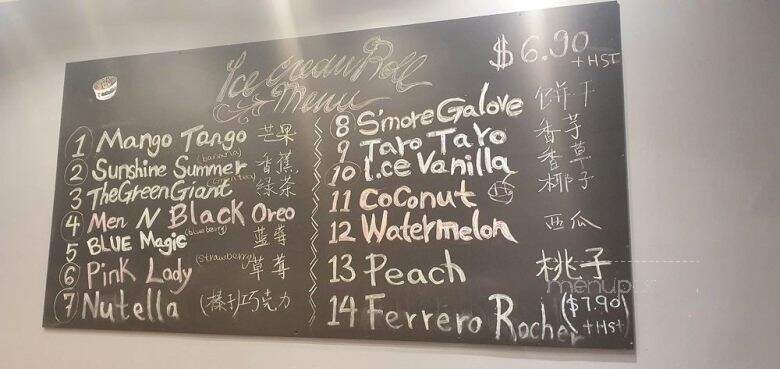 Ice Cream Roll
Menu
$6.90
+HST
1 Mango Tango 芒果
(banana)
2 Sunshine Summer 香蕉
(Green tea)
3 The Green Giant 緑茶
4 Men N Black Oreo
(blueberry)
5 BLUE Magic 蓝莓
(strawberry)
6 Pink Lady 草莓
7 Nutella (榛子)巧克力
8 S'more Galove 饼干
9 Taro Taro 香芋
10 I.ce Vanilla 香草
11 CoConut 椰子
12 Watermelon 西瓜
13 Peach 桃子
14 Ferrero Rocher ($7.90
+Hst)
menupix